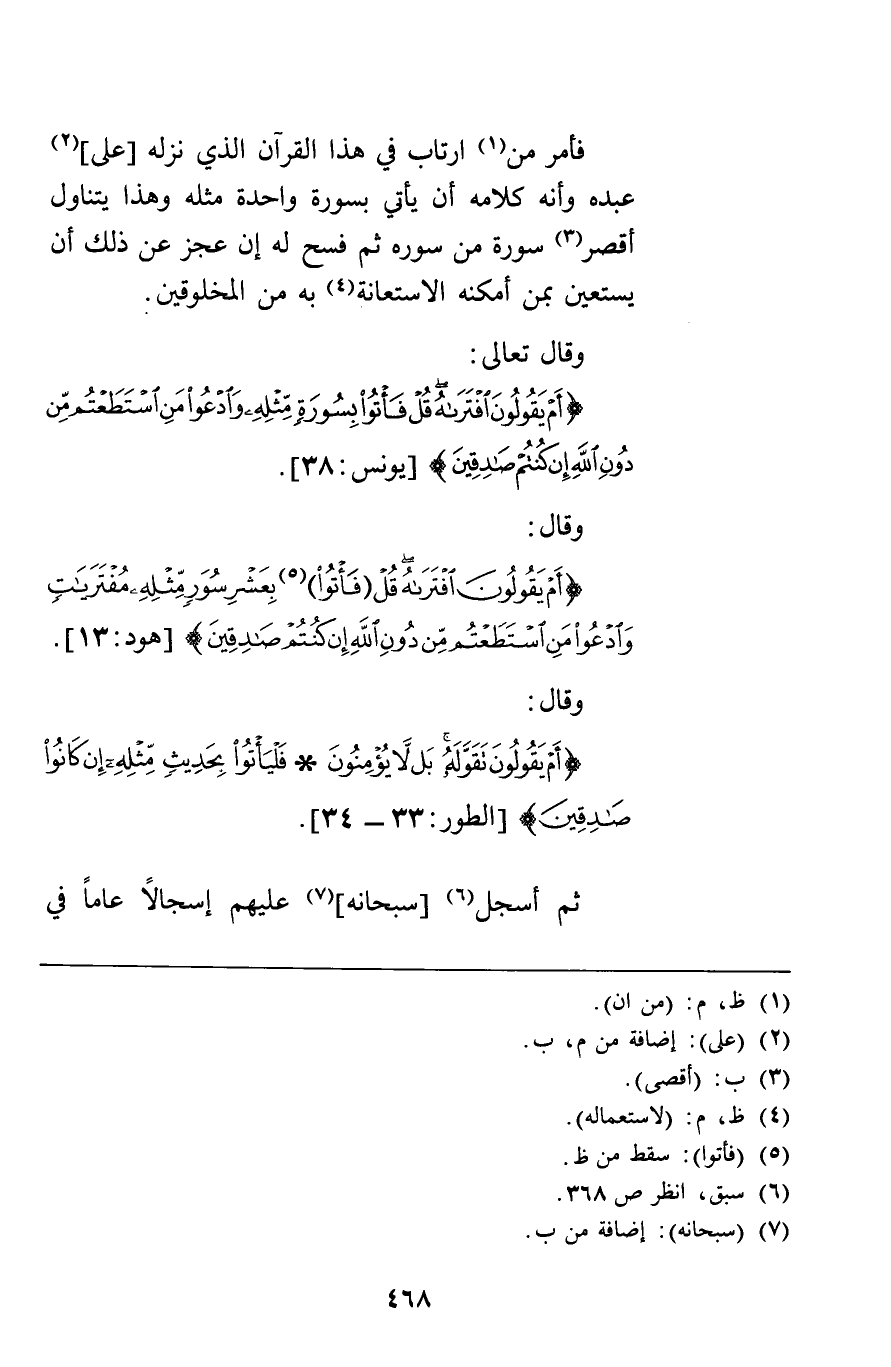 فأمر من(١) ارتاب في هذا القرآن الذي نزله [على](٢)
عبده وأنه كلامه أن يأتي بسورة واحدة مثله وهذا يتناول
أقصر(٣) سورة من سوره ثم فسح له إن عجز عن ذلك أن
يستعين بمن أمكنه الاستعانة(٤) به من المخلوقين.
وقال تعالى:
﴿أَمْ يَقُولُونَ ٱفْتَرَىٰهُۖ قُلْ فَأْتُوا۟ بِسُورَةٍ مِّثْلِهِۦ وَٱدْعُوا۟ مَنِ ٱسْتَطَعْتُم مِّن
دُونِ ٱللَّهِ إِن كُنتُمْ صَٰدِقِينَ﴾ [يونس: ٣٨].
وقال:
﴿أَمْ يَقُولُونَ ٱفْتَرَىٰهُۖ قُلْ (فَأْتُوا۟)(٥) بِعَشْرِ سُوَرٍ مِّثْلِهِۦ مُفْتَرَيَٰتٍ
وَٱدْعُوا۟ مَنِ ٱسْتَطَعْتُم مِّن دُونِ ٱللَّهِ إِن كُنتُمْ صَٰدِقِينَ﴾ [هود: ١٣].
وقال:
﴿أَمْ يَقُولُونَ تَقَوَّلَهُۥۚ بَل لَّا يُؤْمِنُونَ * فَلْيَأْتُوا۟ بِحَدِيثٍ مِّثْلِهِۦٓ إِن كَانُوا۟
صَٰدِقِينَ﴾ [الطور: ٣٣ ــ ٣٤].
ثم أسجل(٦) [سبحانه](٧) عليهم إسجالاً عاماً في
(١) ظ، م: (من ان).
(٢) (على): إضافة من م، ب.
(٣) ب: (أقصى).
(٤) ظ، م: (لاستعماله).
(٥) (فأتوا): سقط من ظ.
(٦) سبق، انظر ص ٣٦٨.
(٧) (سبحانه): إضافة من ب.
٤٦٨